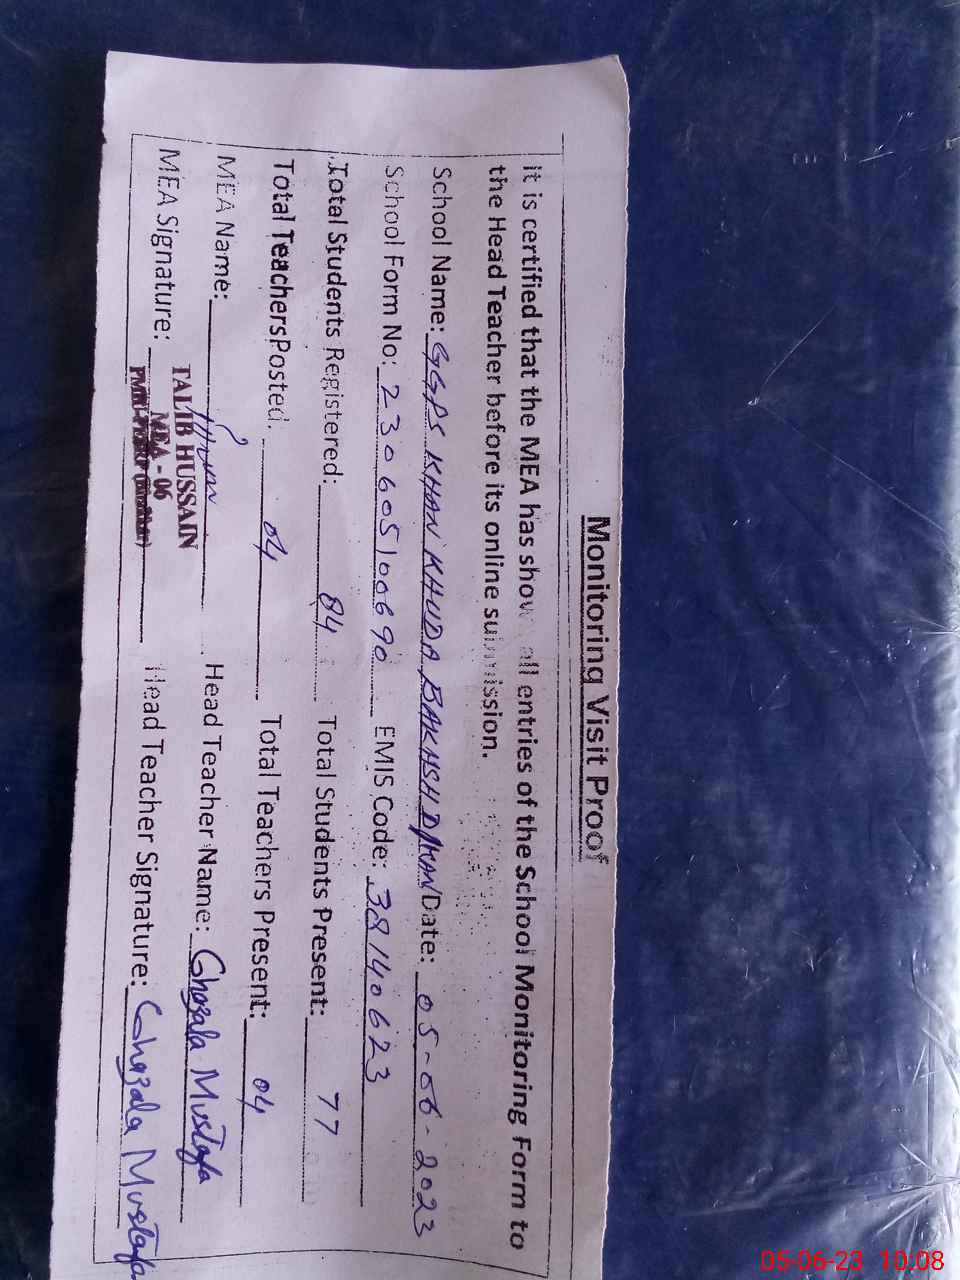 Monitoring Visit Proof
It is certified that the MEA has shown all entries of the School Monitoring Form to
the Head Teacher before its online submission.
School Name: GGPS KHAN KHUDA BAKHSH DAKAN Date: 05-06-2023
School Form No: 230605100690 EMIS Code: 38140623
Total Students Registered: 84 Total Students Present: 77
Total Teachers Posted. 04 Total Teachers Present: 04
MEA Name: Head Teacher Name: Ghazala Mustafa
TALIB HUSSAIN
MEA Signature: Head Teacher Signature: Ghazala Mustafa
MEA - 06
05-06-23 10:08